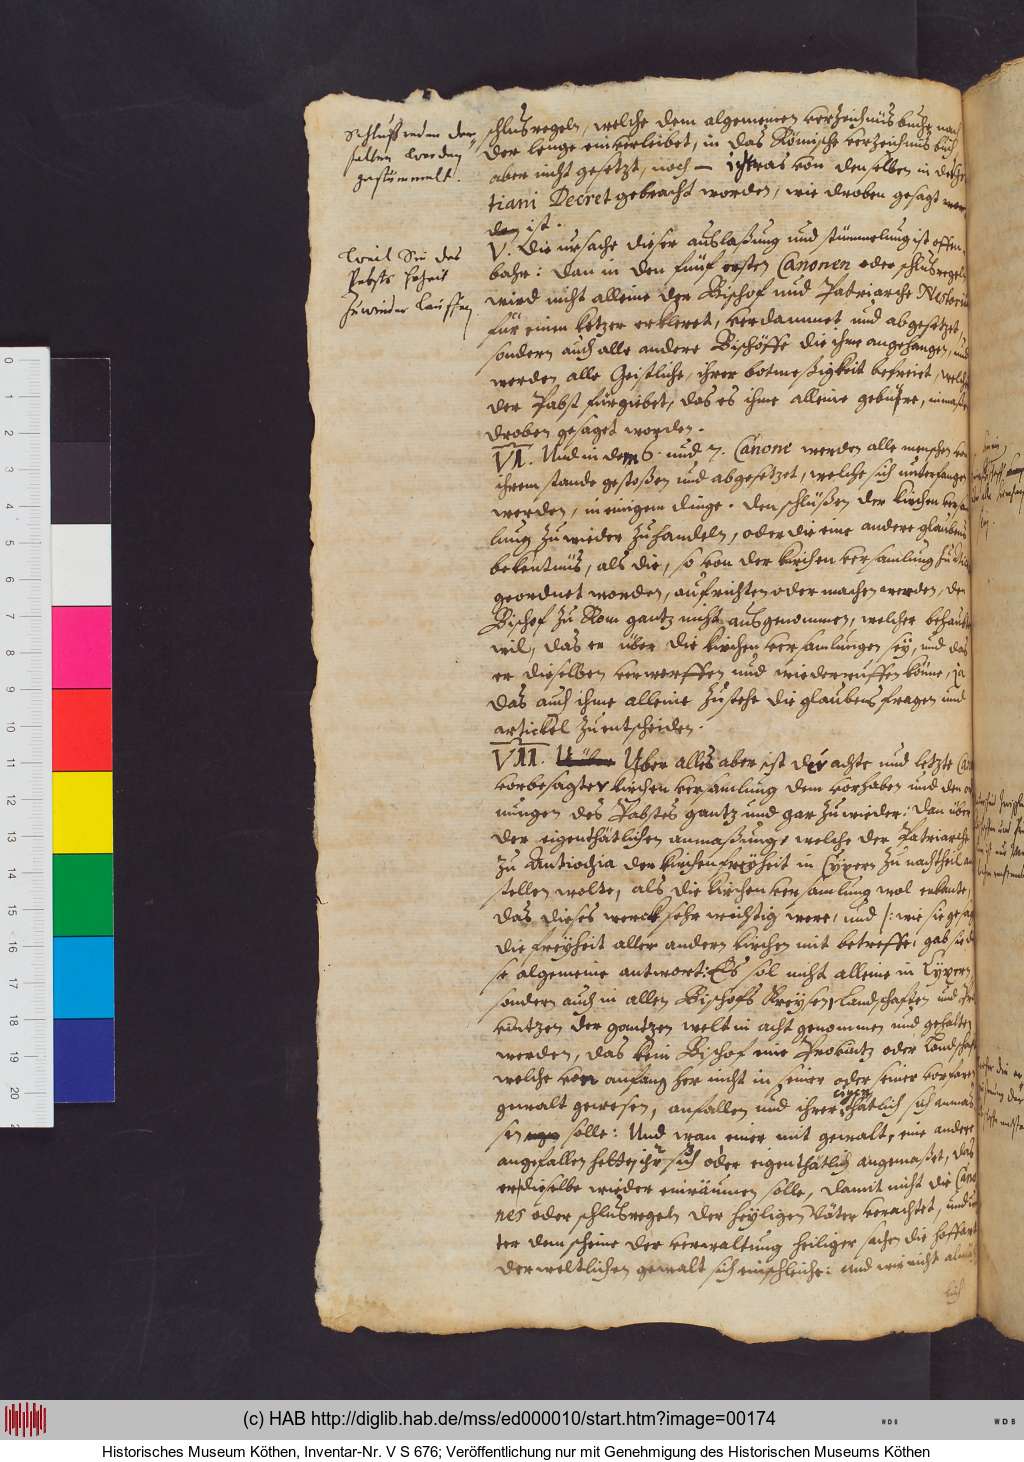 Schlußreden der
selben worden
gestümmelt.
schlusregeln, welche dem algemeinen verzeichnüs buche nach
der lenge einverleibet, in das Römische verzeichnüs buch
aber nicht gesetzt, noch — ichtwas von denselben in des
tiani Decret gebracht worden, wie droben gesagt wor
den ist.
Weil Sie des
Pabsts hoheit
zuwieder lauffen
V. Die ursache dieser auslaßung und stümmelung ist offen
bahr: dan in den fünf ersten Canonen oder schlusregeln
wird nicht alleine der Bischof und Patriarche Nestorius
für einen ketzer erkleret, verdammet und abgesetzet,
sondern auch alle andere Bischöffe die ihme angehangen, und
werden alle Geistliche, ihrer botmeßigkeit befreiet, welche
der Pabst fürgiebet, das es ihme alleine gebüre, inmaßen
droben gesaget worden.
VI. Und in dem 6. und 7. Canone werden alle menschen von
ihrem stande gestoßen und abgesetzet, welche sich unterfangen
werden, in einigem dinge, den schlüßen der kirchen versam
lung zuwieder zuhandeln, oder die eine andere glaubens
bekentnüs, als die, so von der kirchen versamlung zu
geordnet worden, aufrichten oder machen werden, den
Bischof zu Rom gantz nicht ausgenommen, welcher behaupten
wil, das er über die kirchen versamlungen sey, und das
er dieselben verwerffen und wiederruffen könne, ja
das auch ihme alleine zustehe die glaubens fragen und
artickel zuentscheiden.
VII. Über alles aber ist der achte und letzte Can
vorbesagter kirchen versamlung dem vorhaben und den
nungen des Pabstes gantz und gar zuwieder: dan über
der eigenthätlichen anmaßunge welche der Patriarche
zu Antiochia der kirchen freyheit in Cypern zu nachtheil an
stellen wolte, als die kirchen versamlung wol erkante,
das dieses werck sehr wichtig were, und /: wie sie gesagt
die freyheit aller andern kirchen mit betreffe, gab sie die
se algemeine antwort: Es sol nicht alleine in Cypern
sondern auch in allen Bischofs Kreysen, Landschaften und Pro
vintzen der gantzen welt in acht genommen und gehalten
werden, das kein Bischof eine Provintz oder Landschaft
welche von anfang her nicht in seiner oder seiner vorfaren
gewalt gewesen, anfallen und ihrer thätlich sich anmas
sen solle: Und wan einer mit gewalt, eine andere
angefallen hette, ihr sich oder eigenthätlich angemaßet, das
er dieselbe wieder einräumen solle, damit nicht die Cano
nes oder schlusregeln der heyligen Väter verachtet, und un
ter dem scheine der verwaltung heiliger sachen die hoffart
der weltlichen gewalt sich einschleiche: und wir nicht
(c) HAB http://diglib.hab.de/mss/ed000010/start.htm?image=00174
WDB
WDB
Historisches Museum Köthen, Inventar-Nr. V S 676; Veröffentlichung nur mit Genehmigung des Historischen Museums Köthen
0
1
2
3
4
5
6
7
8
9
10
11
12
13
14
15
16
17
18
19
20